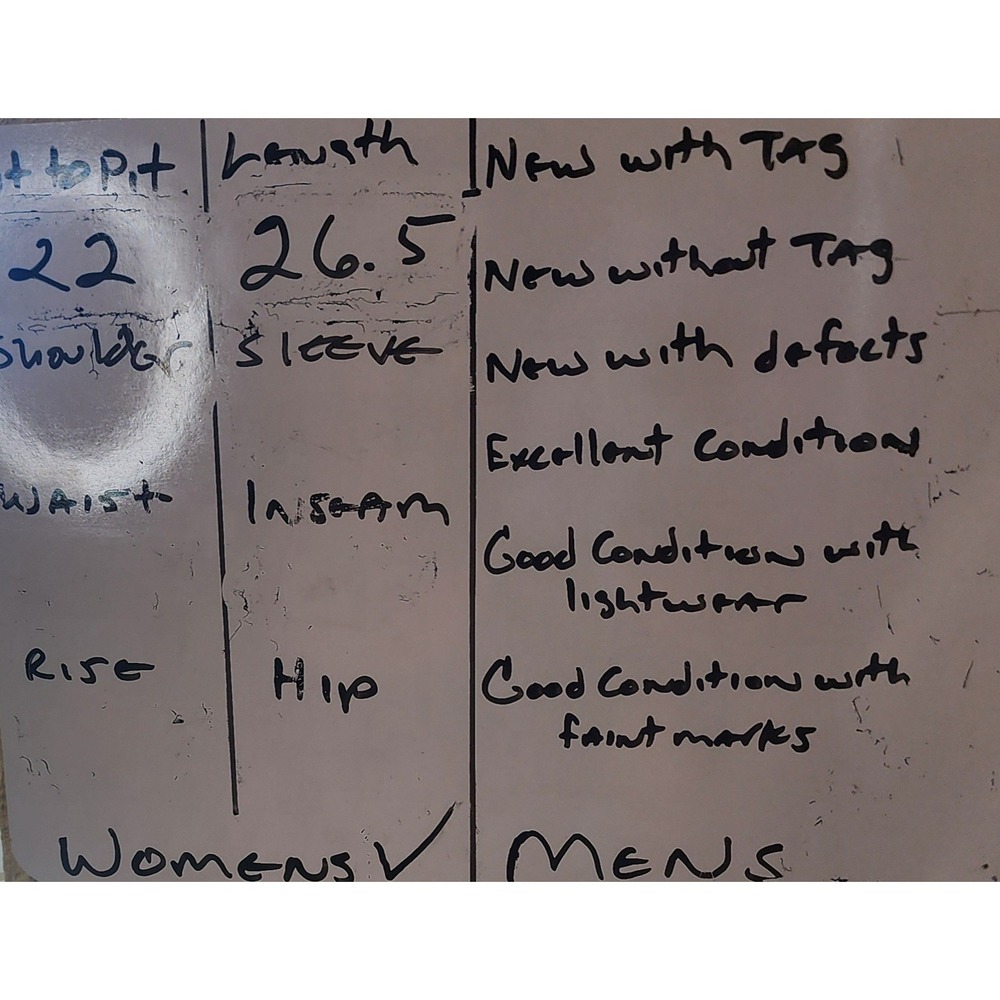 it to Pit
Length
22
26.5
Shoulder
SLEEVE
WAIST
INSEAM
RISE
Hip
WOMENS ✓
New with TAG
New without TAG
New with defects
Excellent Condition
Good Condition with
lightwear
Good Condition with
faint marks
MENS